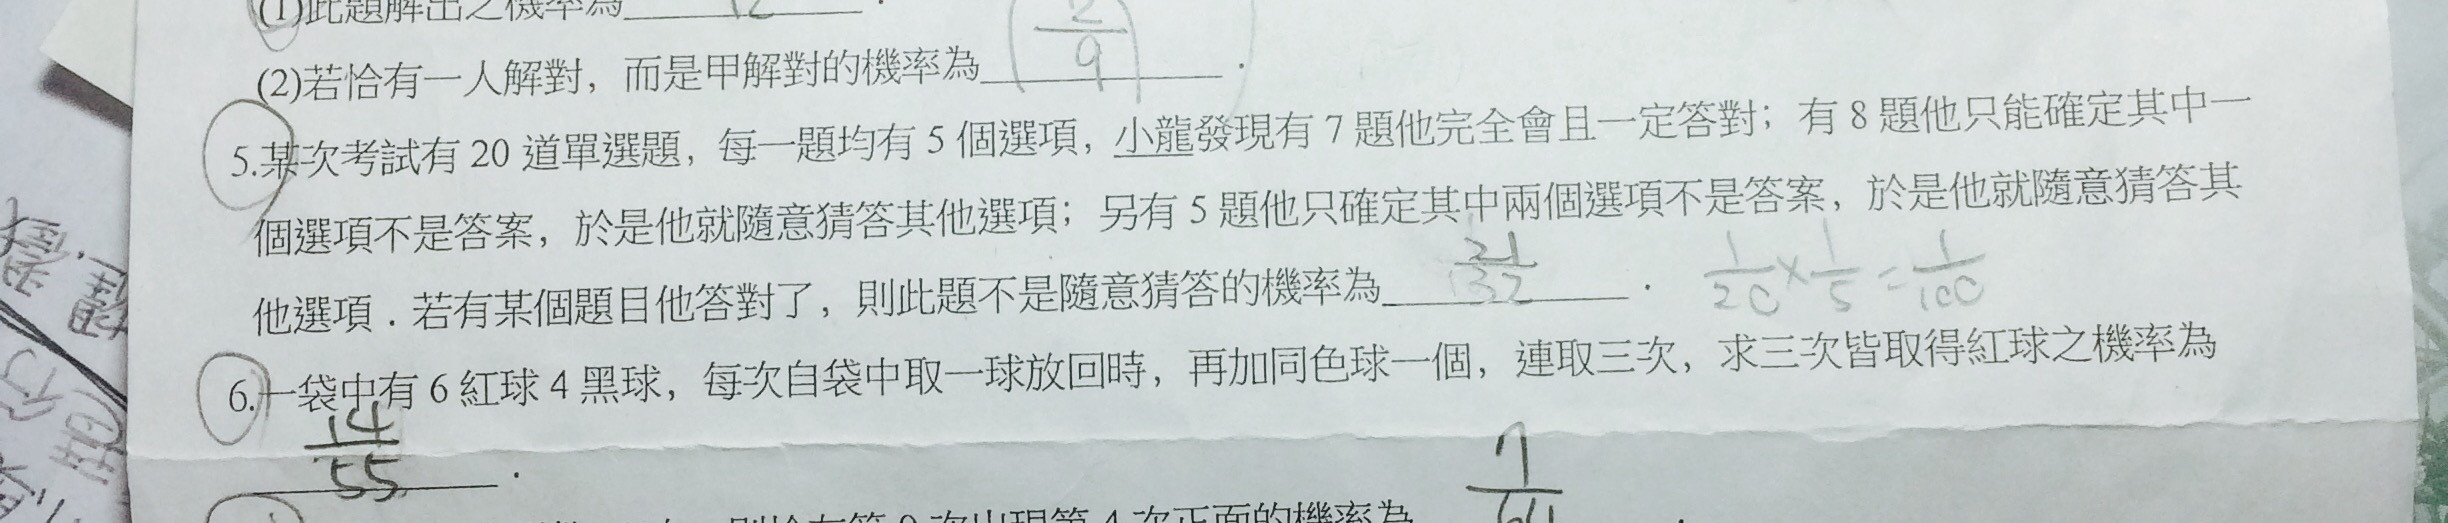 (1)此題解出之機率為 12 .
(2)若恰有一人解對，而是甲解對的機率為 2/9 .
5.某次考試有 20 道單選題，每一題均有 5 個選項，小龍發現有 7 題他完全會且一定答對；有 8 題他只能確定其中一
個選項不是答案，於是他就隨意猜答其他選項；另有 5 題他只確定其中兩個選項不是答案，於是他就隨意猜答其
他選項．若有某個題目他答對了，則此題不是隨意猜答的機率為 21/32 . 1/20 × 1/5 = 1/100
6.一袋中有 6 紅球 4 黑球，每次自袋中取一球放回時，再加同色球一個，連取三次，求三次皆取得紅球之機率為
14/55 .
次出現第 4 次正面的機率為 7/64 .